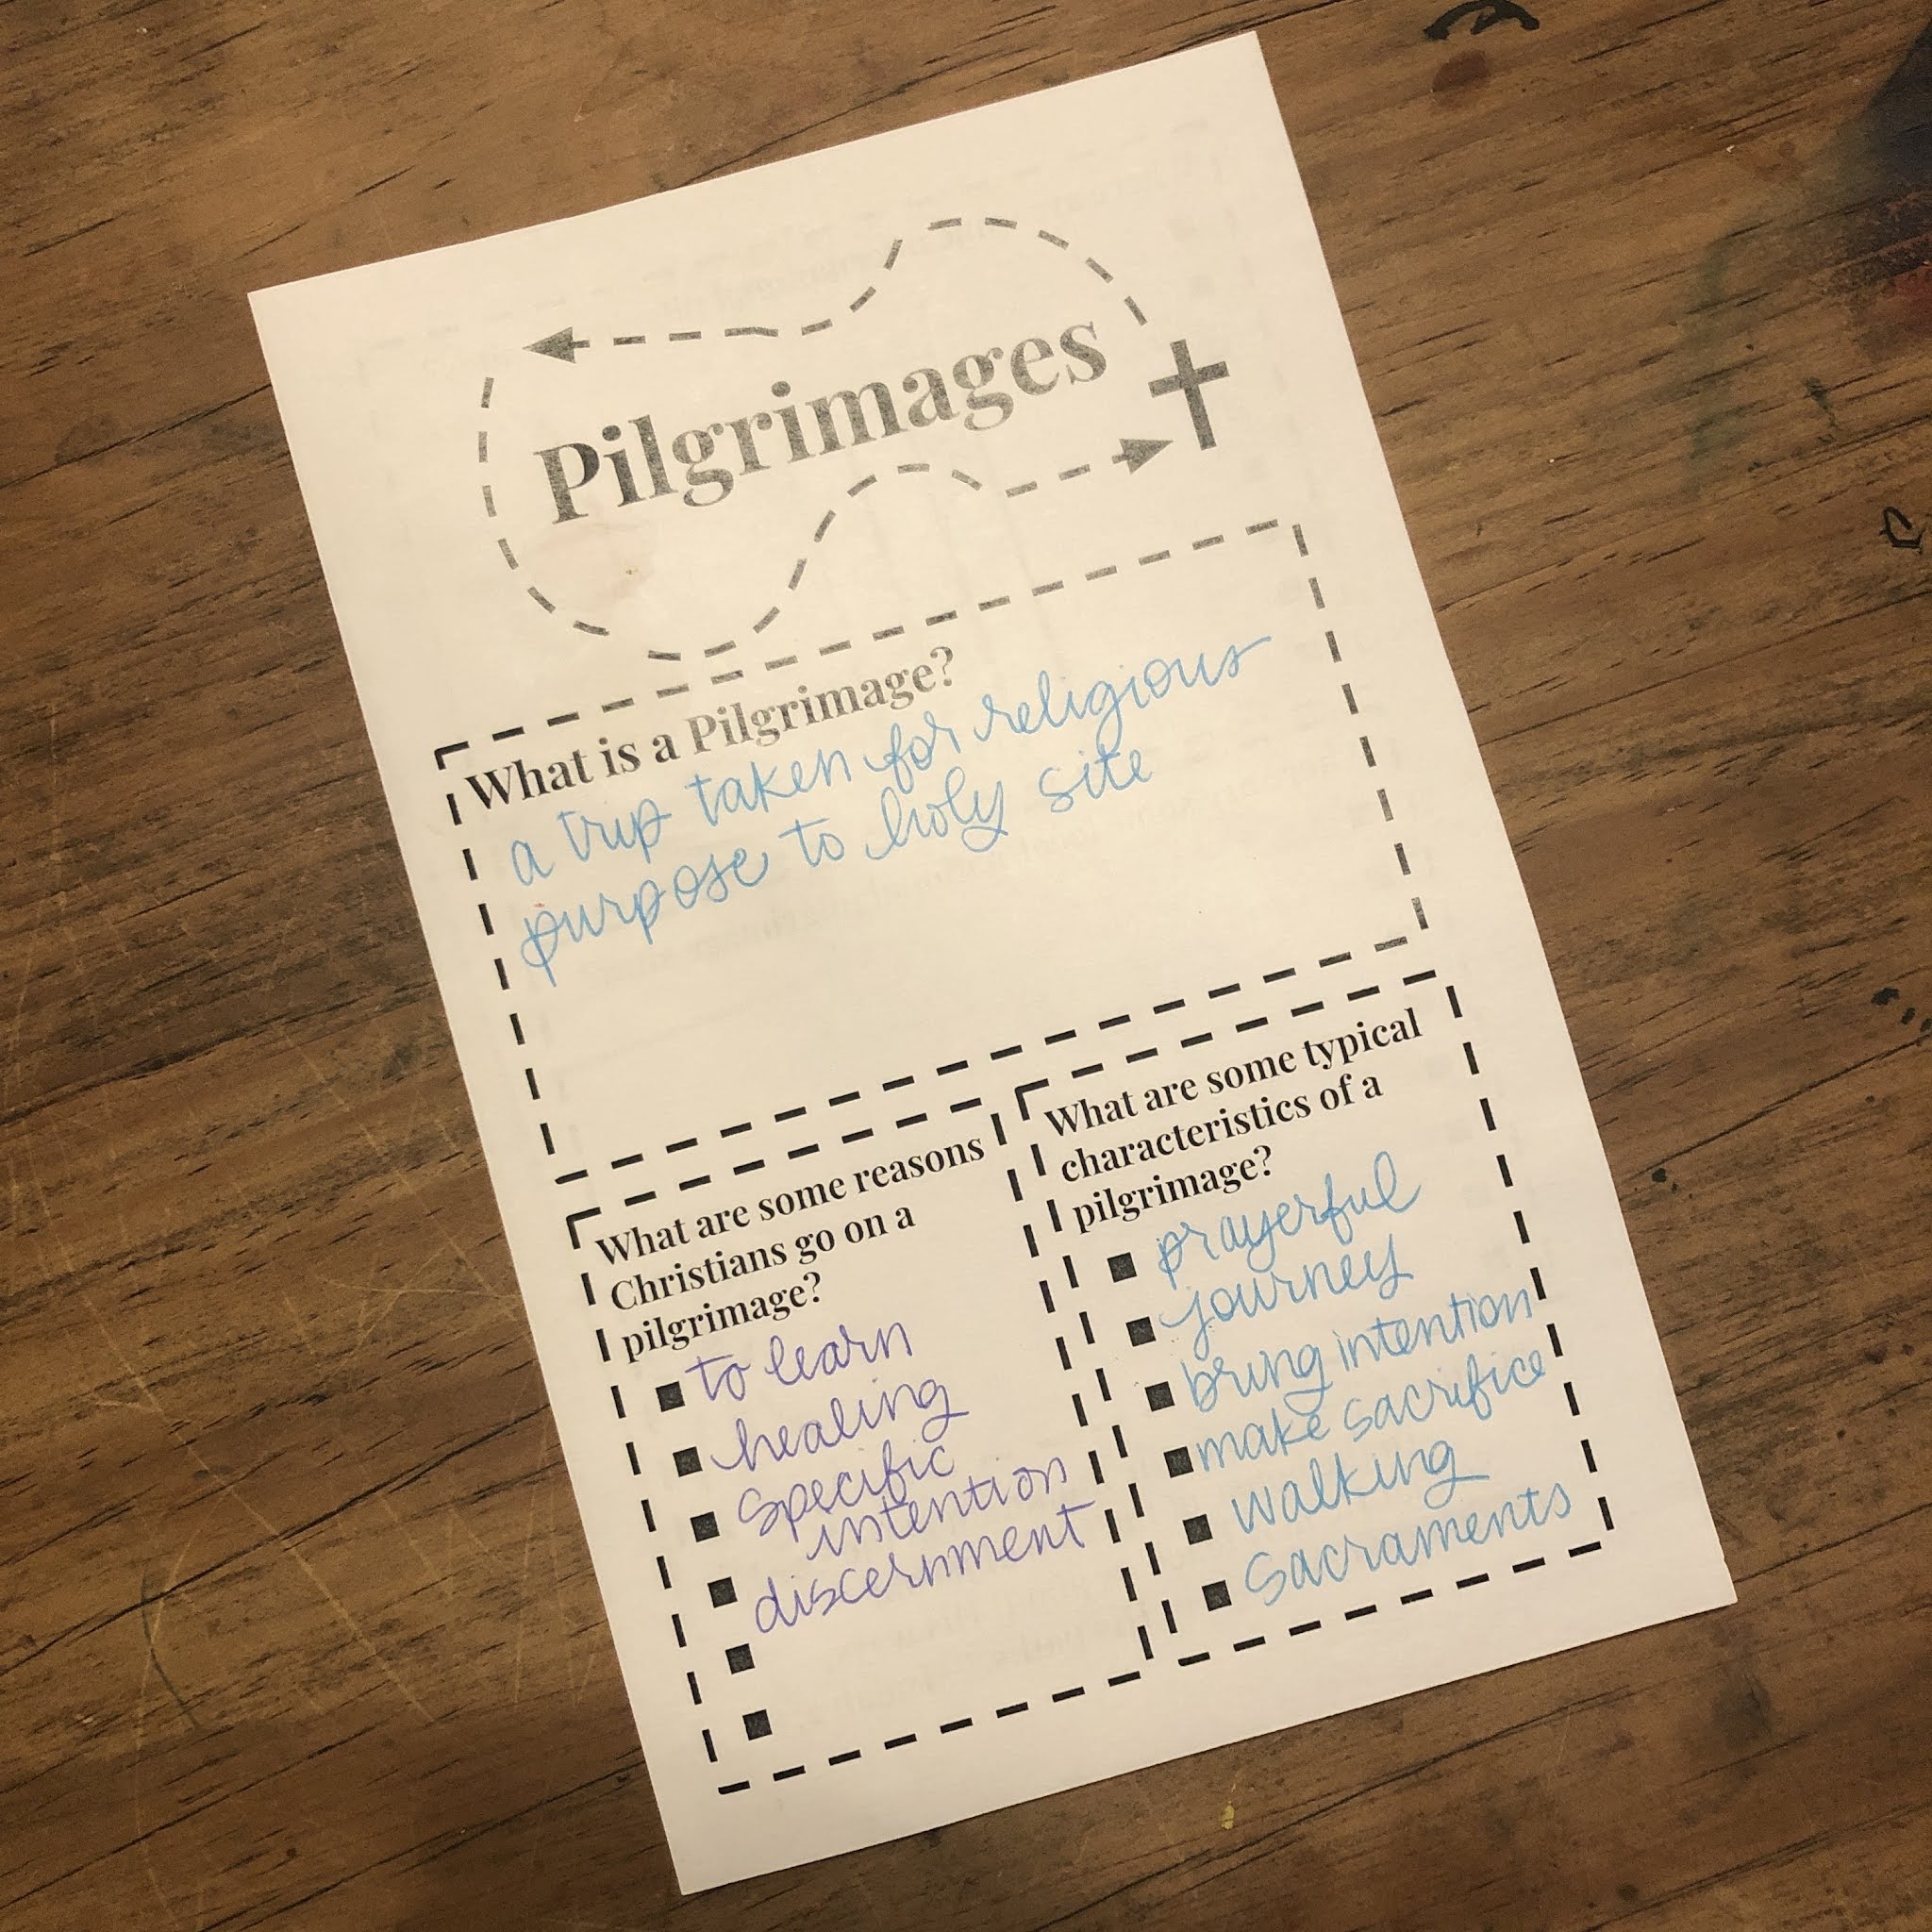 Pilgrimages
What is a Pilgrimage?
a trip taken for religious
purpose to holy site
What are some reasons
Christians go on a
pilgrimage?
to learn
healing
specific
intention
discernment
What are some typical
characteristics of a
pilgrimage?
prayerful
journey
bring intention
make sacrifice
walking
Sacraments